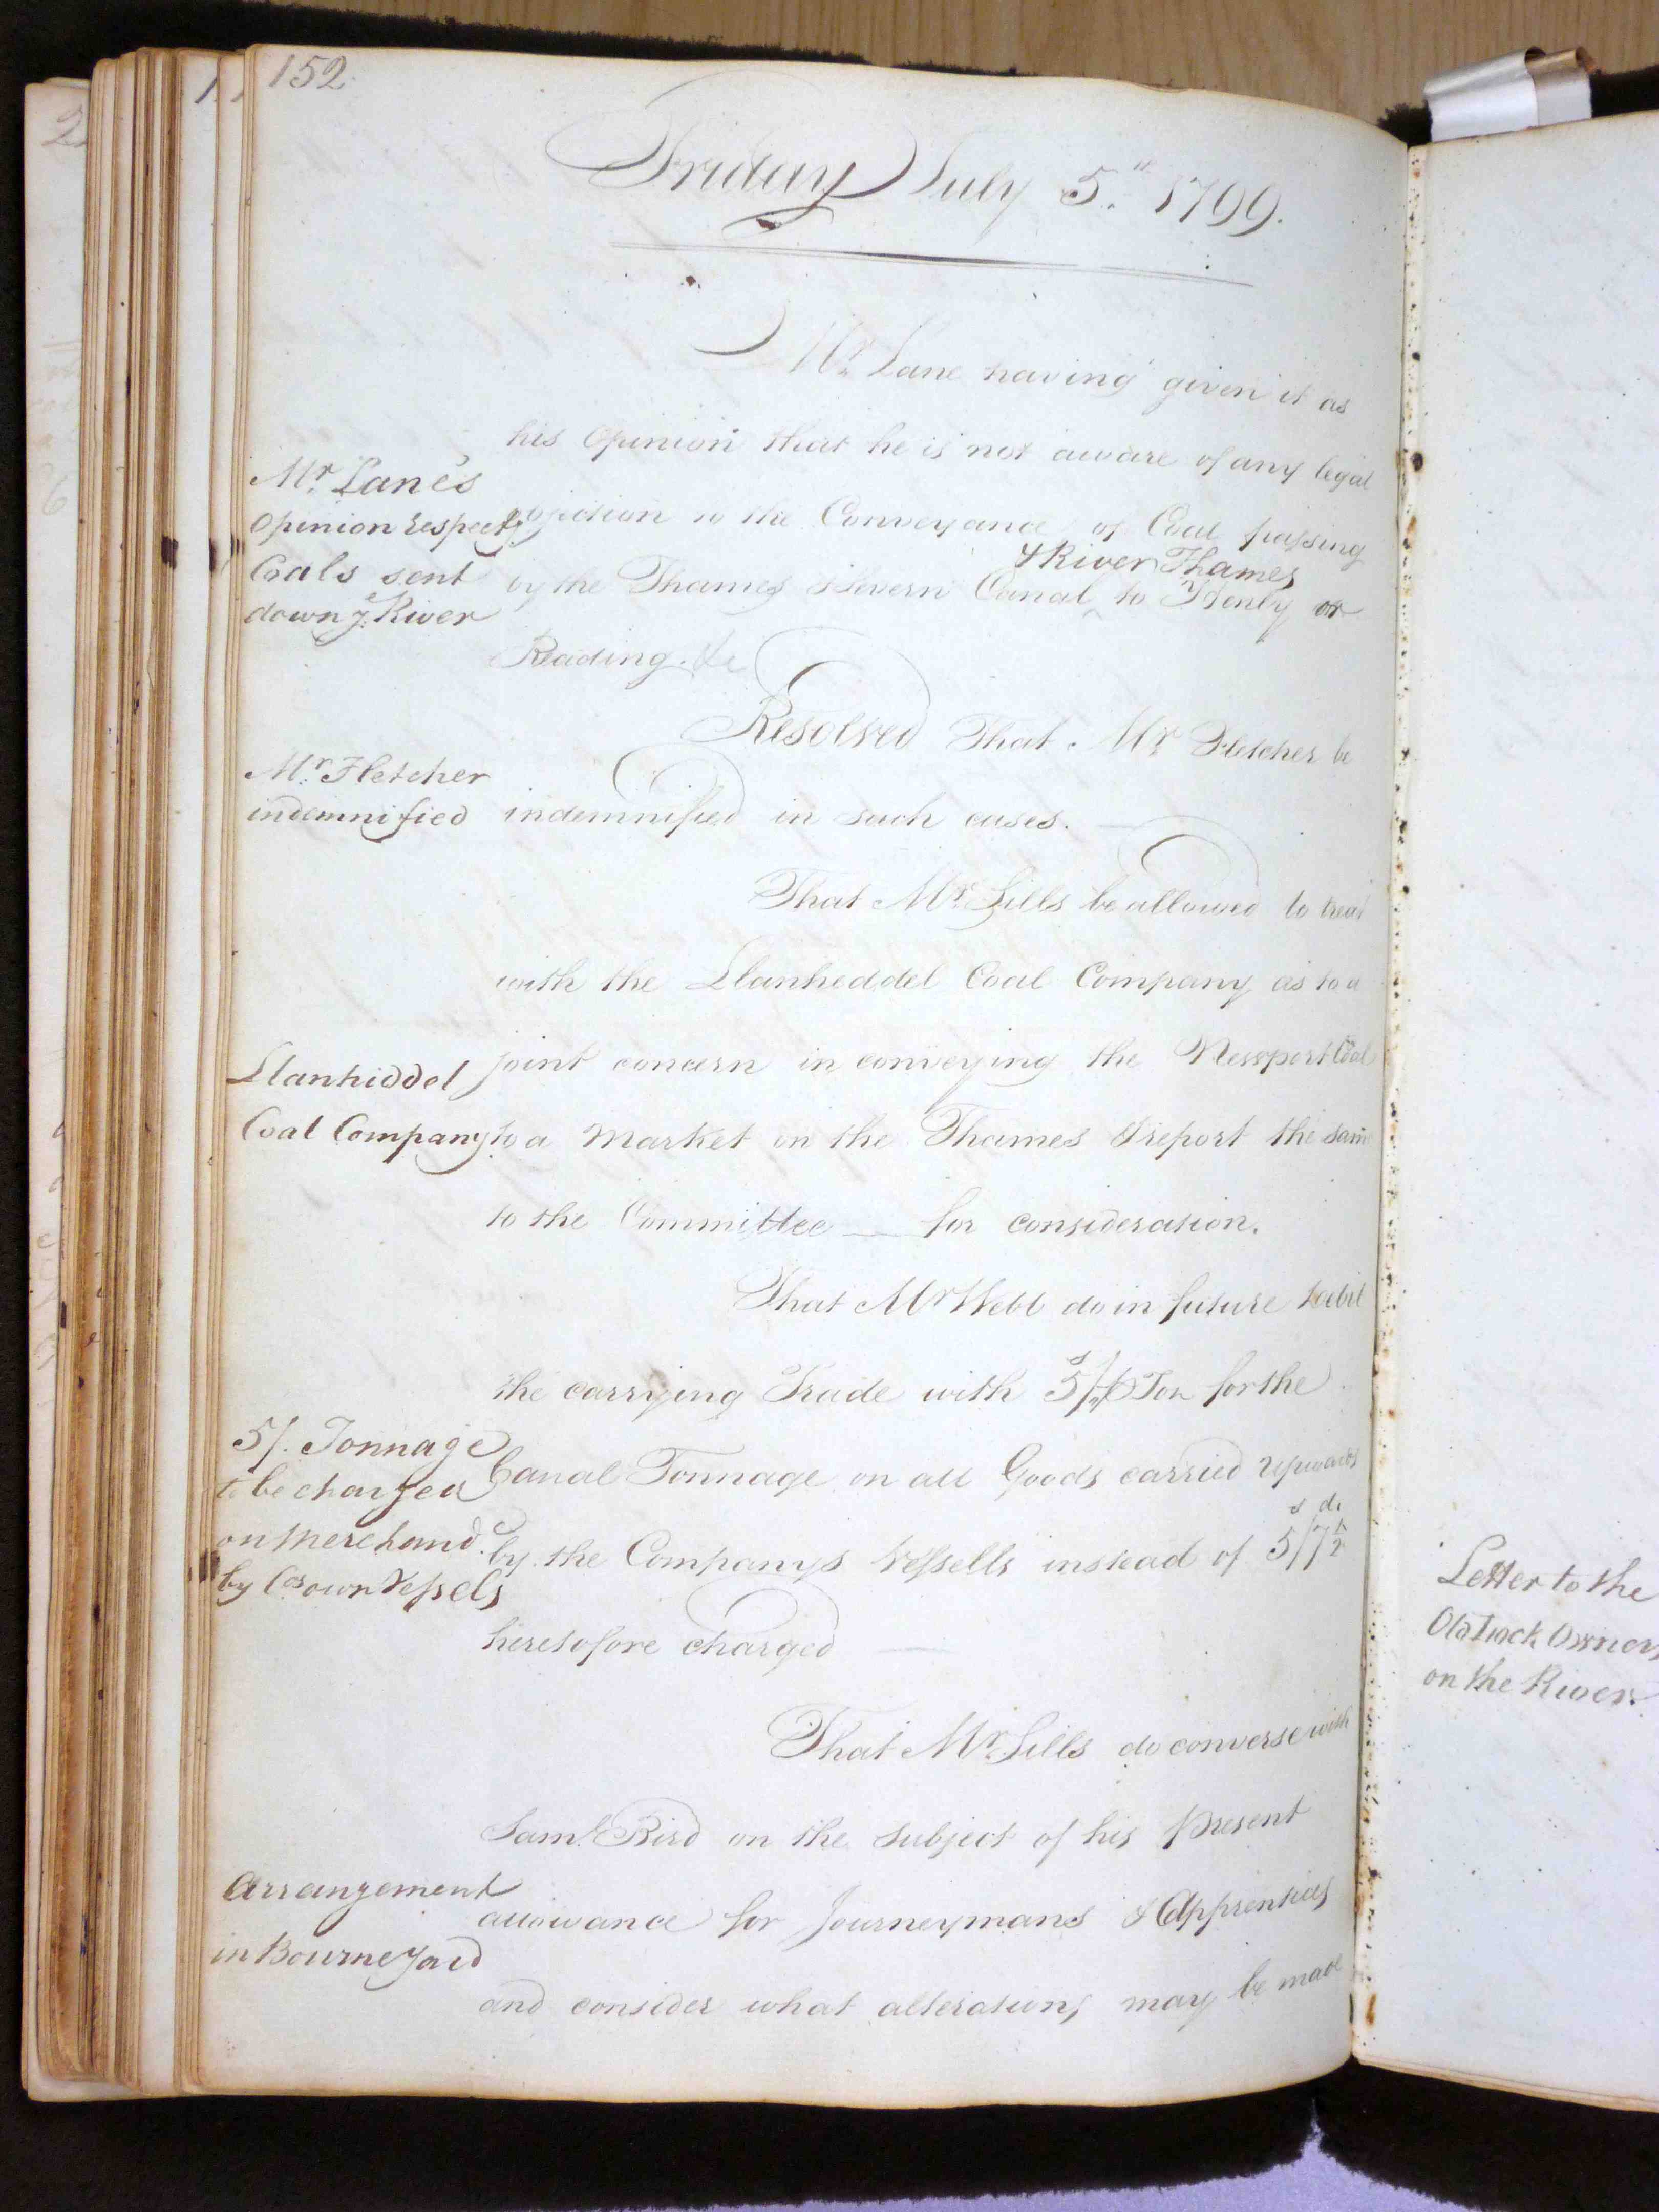 152.
Friday July 5th 1799.
Mr. Lane having given it as
his Opinion that he is not aware of any legal
Mr. Lane's
Opinion respectg
Coals sent
down ye. River
objection to the Conveyance of Coal passing
& River Thames
by the Thames & Severn Canal ^ to Henly or
Reading. &c
Resolved That Mr. Fletcher be
Mr. Fletcher
indemnified
indemnified in such cases.
That Mr. Sills be allowed to treat
with the Llanheddel Coal Company as to a
joint concern in conveying the Newport Coal
Llanhiddel
Coal Company
to a Market on the Thames & report the same
to the Committee — for consideration.
That Mr Webb do in future debit
the carrying Trade with 5/ s p Ton for the
5/. Tonnage
to be charged
on Merchand.
by Cos own Vessels
Canal Tonnage on all Goods carried upwards
by the Companys Vessells instead of 5/7½ s d.
heretofore charged —
That Mr. Sills do converse with
Saml. Bird on the subject of his present
Arrangement
in Bourne Yard
allowance for Journeymans & Apprentices
and consider what alterations may be made
Letter to the
Old Lock Owners
on the River.